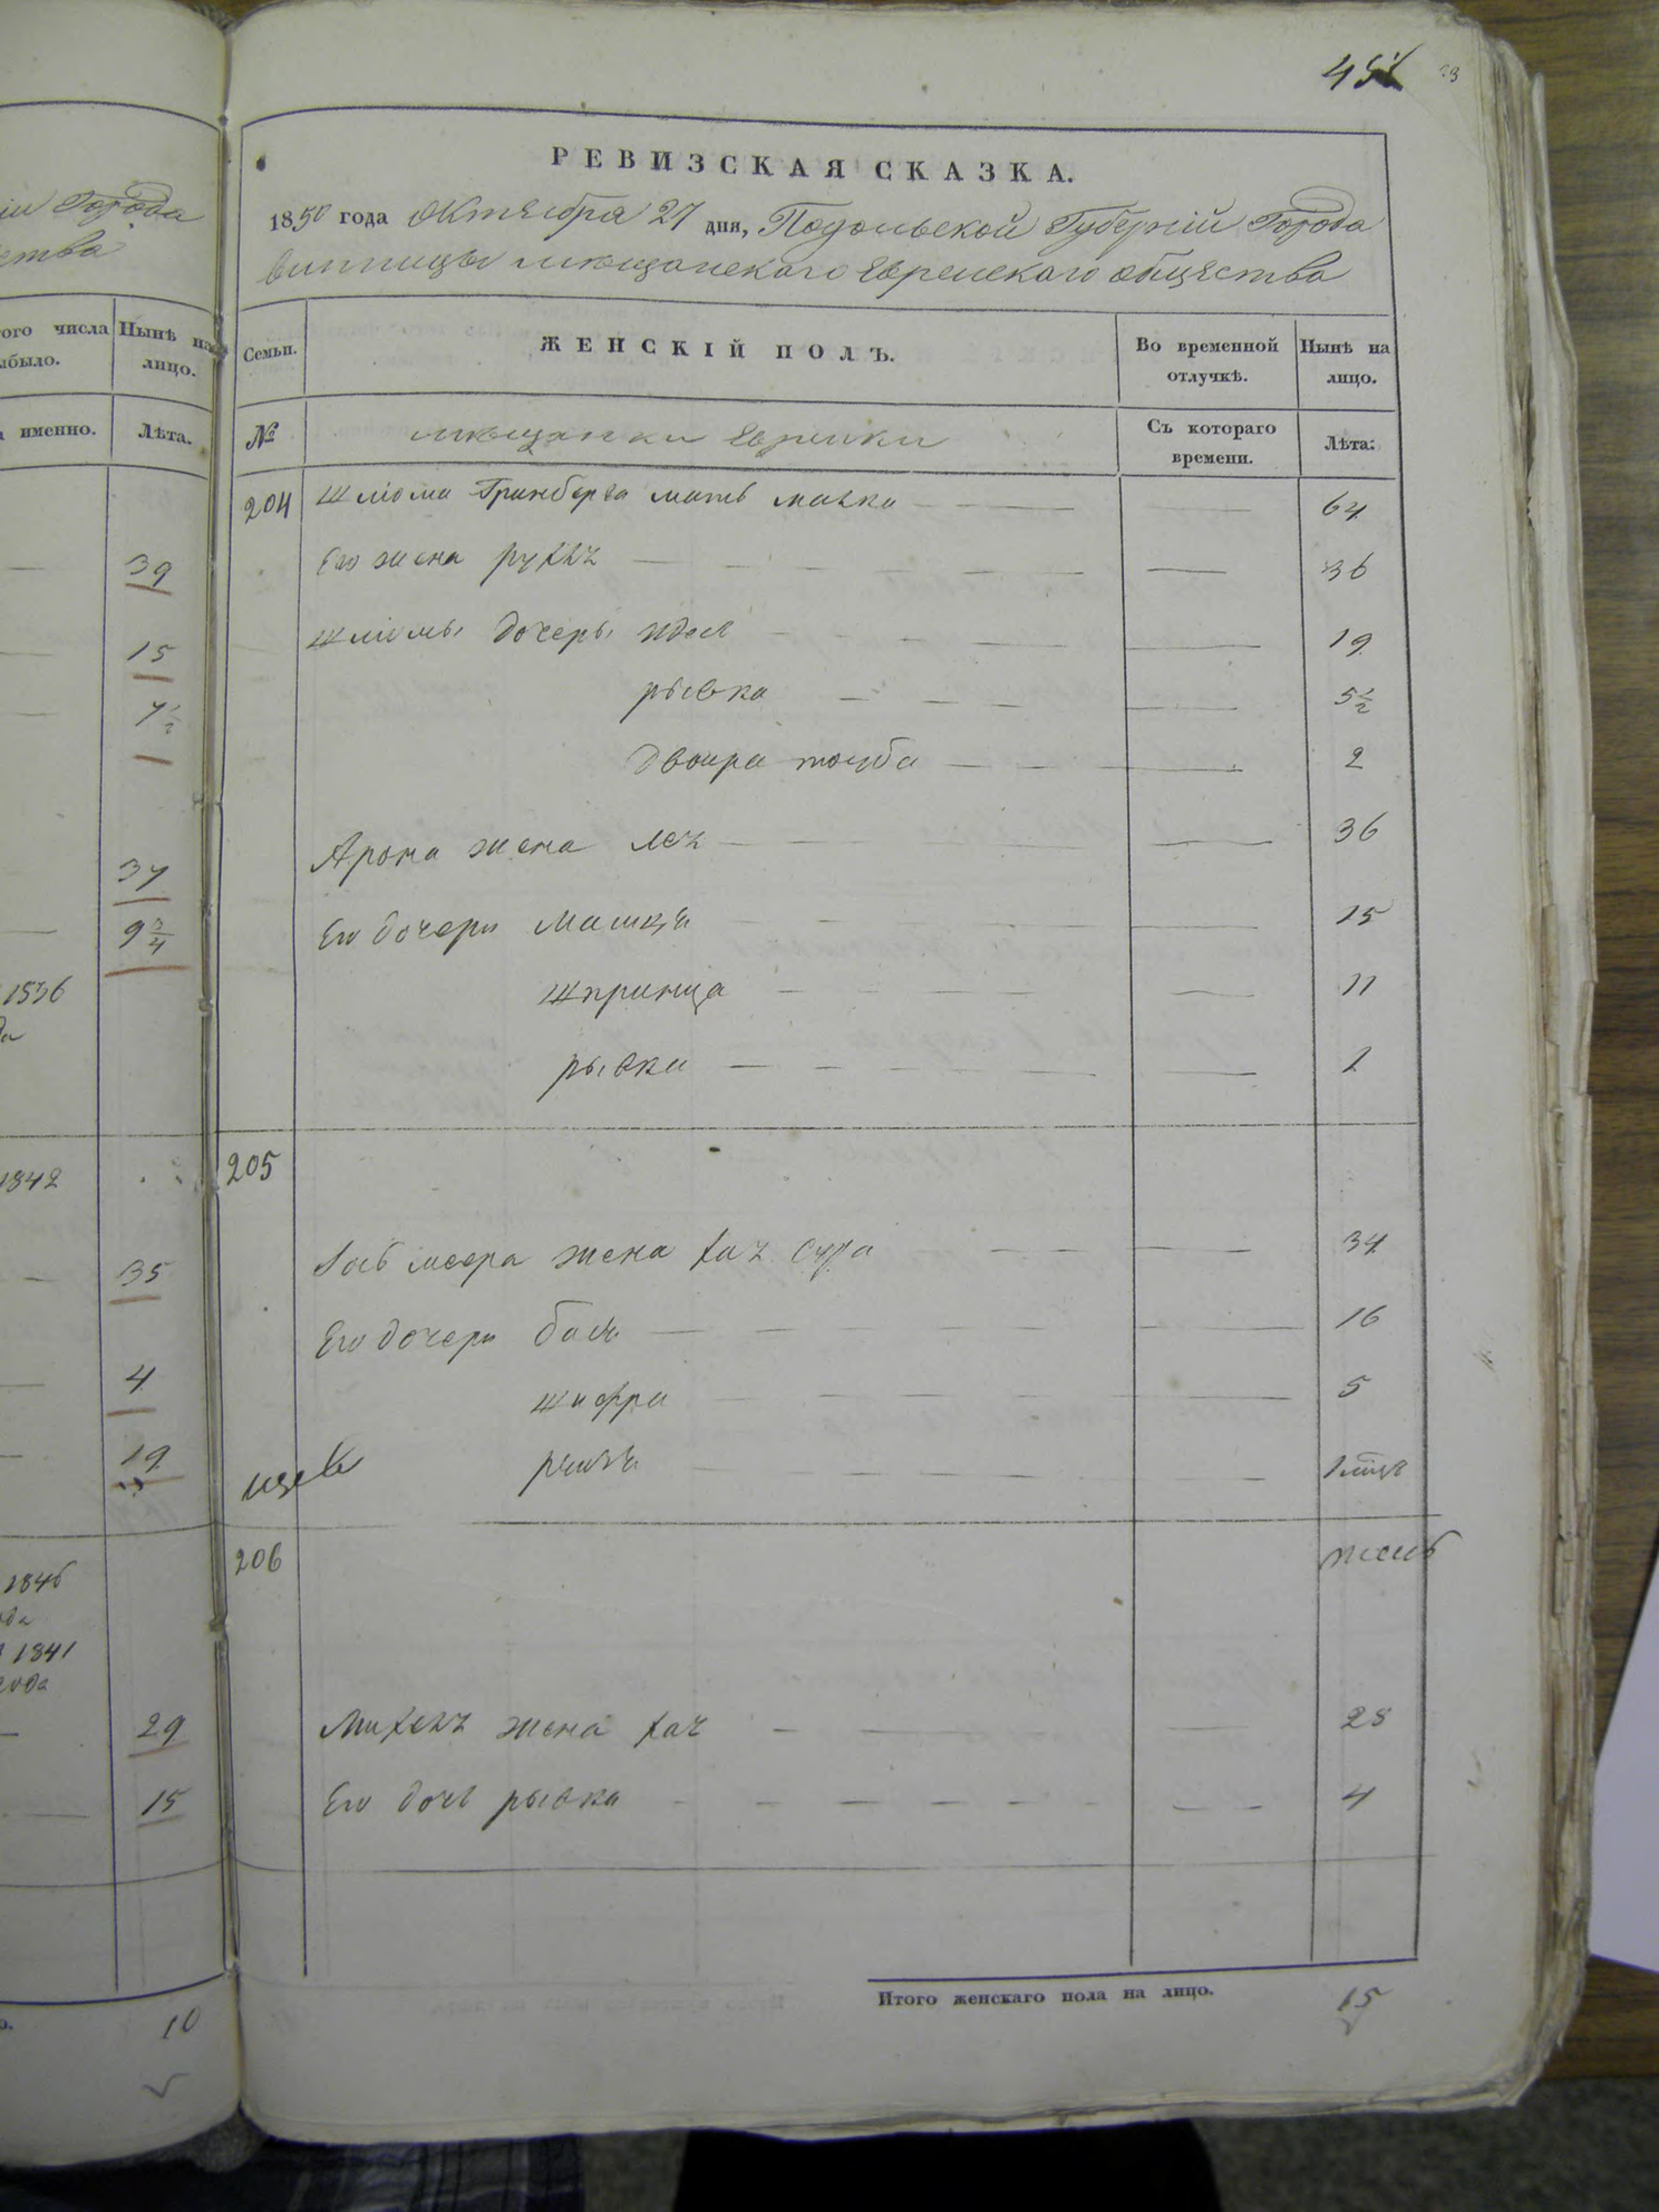 іи Города
ства
ого числа
было.
Нынѣ на
лицо.
именно.
Лѣта.
39
15
7½
37
9¾
1836
1842
35
4
19
1846
1841
года
29
15
10
45
РЕВИЗСКАЯ СКАЗКА.
1850 года Октября 27 дня, Подольской Губерніи Города
Винницы мѣщанскаго Еврейскаго общества
Семьи.
ЖЕНСКІЙ ПОЛЪ.
Во временной отлучкѣ.
Нынѣ на лицо.
№
мѣщанки Еврейки
Съ котораго времени.
Лѣта:
204 Шліома Гринберга мать Малка 64
Его жена Рухль 36
Шліомы дочери Идея 19
Рывка 5½
Двойра Тоуба 2
Арона жена Лея 36
Его дочери Машка 15
Шпринца 11
Рывка 1
205
меера жена Хая Сура 34
Его дочери Бася 16
Шифра 5
206
Михеля жена Хая 28
Его дочь Рывка 4
Итого женскаго пола на лицо. 15